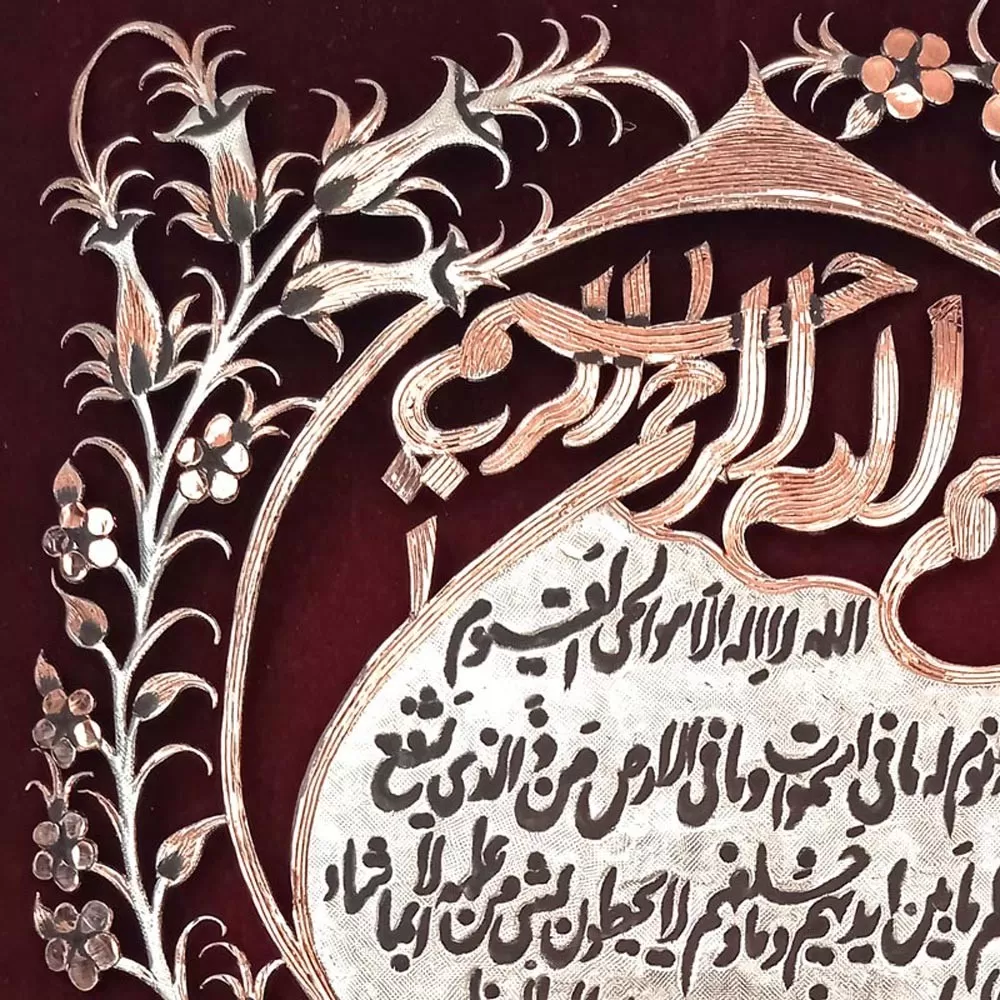 الله الرحمن الرحیم
الله لا اله الا هو الحی القیوم
نوم له ما فی السموات و ما فی الارض من ذالذی یشفع
ما بین ایدیهم و ما خلفهم لا یحیطون بشی من علمه الا بما شاء